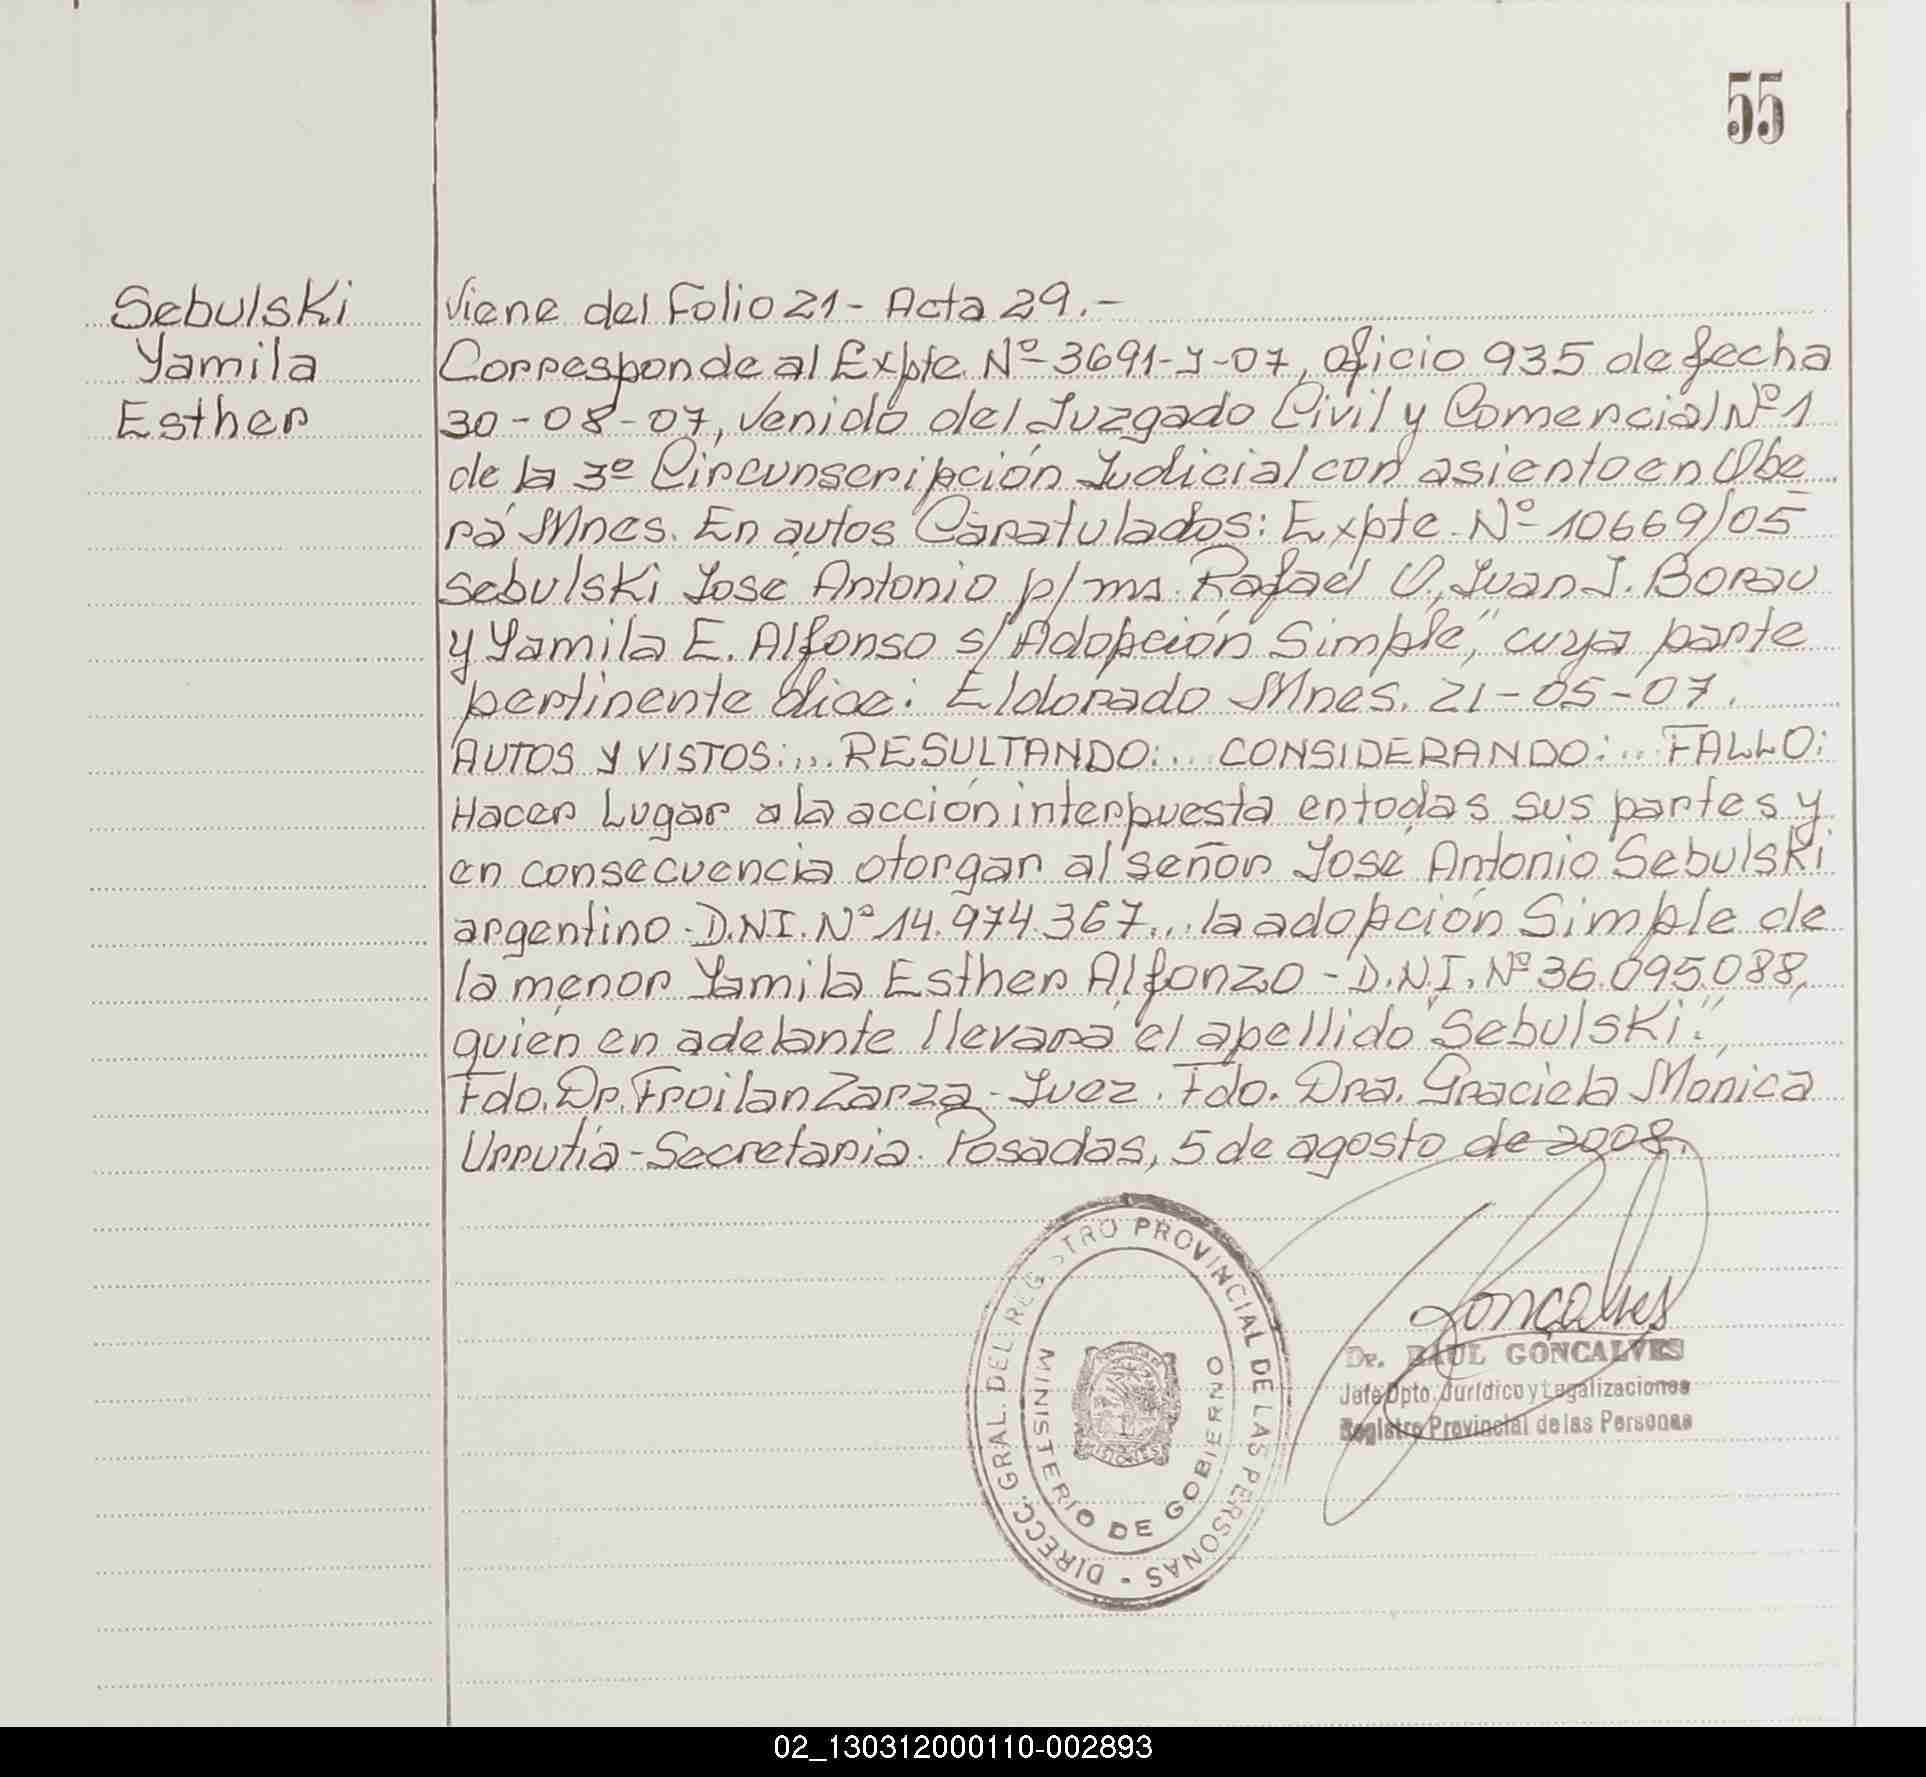 55
Sebulski
Yamila
Esther
Viene del Folio 21 - Acta 29.-
Corresponde al Expte Nº 3691-J-07, oficio 935 de fecha
30-08-07, venido del Juzgado Civil y Comercial Nº 1
de la 3º Circunscripción Judicial con asiento en Obe
rá Mnes. En autos Caratulados: Expte Nº 10669/05
Sebulski José Antonio p/ms. Rafael O., Juan J. Borau
y Yamila E. Alfonso s/Adopción Simple", cuya parte
pertinente dice: Eldorado Mnes. 21-05-07.
AUTOS Y VISTOS:... RESULTANDO:... CONSIDERANDO:... FALLO:
Hacer Lugar a la acción interpuesta en todas sus partes y
en consecuencia otorgar al señor José Antonio Sebulski
argentino - D.N.I. Nº 14.974.367... la adopción Simple de
la menor Yamila Esther Alfonzo - D.N.I. Nº 36.095.088,
quien en adelante llevará el apellido "Sebulski".
Fdo. Dr. Froilan Zarza - Juez. Fdo. Dra. Graciela Mónica
Urrutia - Secretaria. Posadas, 5 de agosto de 2008.
DIRECC. GRAL. DEL REGISTRO PROVINCIAL DE LAS PERSONAS -
MINISTERIO DE GOBIERNO
MISIONES
Goncalves
Dr. RAUL GONCALVES
Jefe Dpto. Jurídico y Legalizaciones
Registro Provincial de las Personas
02_130312000110-002893